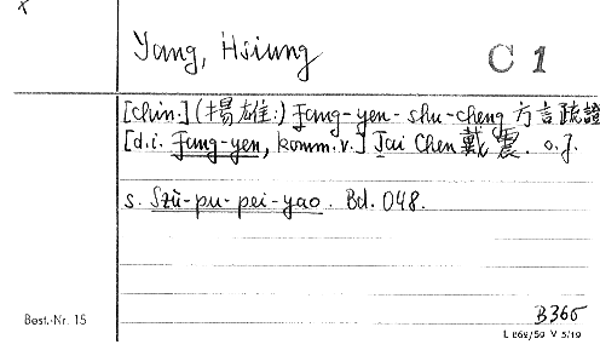 x
Yang, Hsiung
C 1
[chin.] (揚雄:) Fang-yen-shu-cheng 方言疏證
[d.i. Fang-yen, komm.v.] Tai Chen 戴震. o.J.
s. Szù-pu-pei-yao. Bd. 048.
Best.-Nr. 15
B366